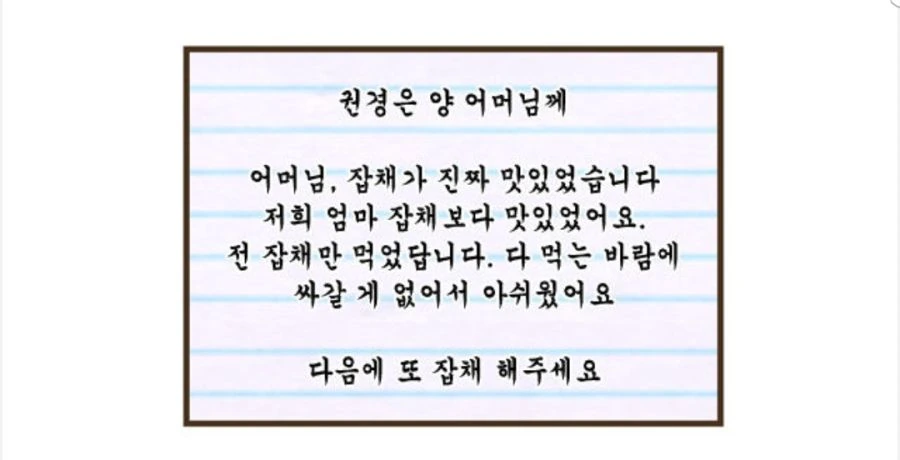 권경은 양 어머님께
어머님, 잡채가 진짜 맛있었습니다
저희 엄마 잡채보다 맛있었어요.
전 잡채만 먹었답니다. 다 먹는 바람에
싸갈 게 없어서 아쉬웠어요
다음에 또 잡채 해주세요